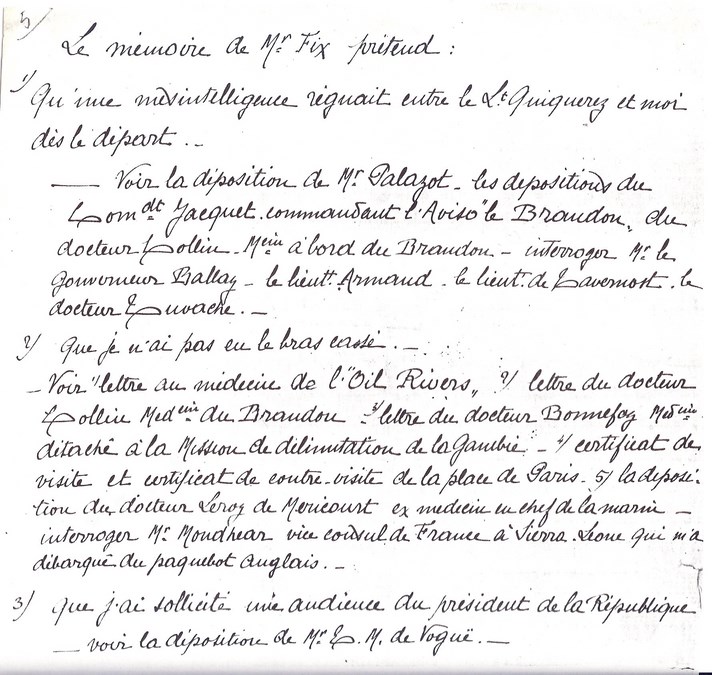 5/
Le mémoire de Mr Fix prétend :
1/ Qu'une mésintelligence régnait entre le Lt Quiquerez et moi
dès le départ. -
— Voir la déposition de Mr Palazot - les depositions du
Comdt Jacquet - commandant l'Aviso "le Brandon", du
docteur Collin - Mein à bord du Brandon - interroger Mr le
Gouverneur Ballay - le lieutt Armand - le lieutt de Tavernost - le
docteur Cuvache. -
2/ que je n'ai pas eu le bras cassé. -
- Voir 1/ lettre au médecin de l'"Oil Rivers" 2/ lettre du docteur
Collin Medein du Brandon - 3/ lettre du docteur Bonnefoy Medein
détaché à la Mission de délimitation de la Gambie - 4/ certificat de
visite et certificat de contre-visite de la place de Paris - 5/ la déposi-
tion du docteur Leroy de Mericourt ex medecin en chef de la marine -
interroger Mr Moudhear vice consul de France à Sierra-Leone qui m'a
débarqué du paquebot anglais. -
3/ que j'ai sollicité une audience du président de la République
- voir la déposition de Mr E. M. de Vogué. -